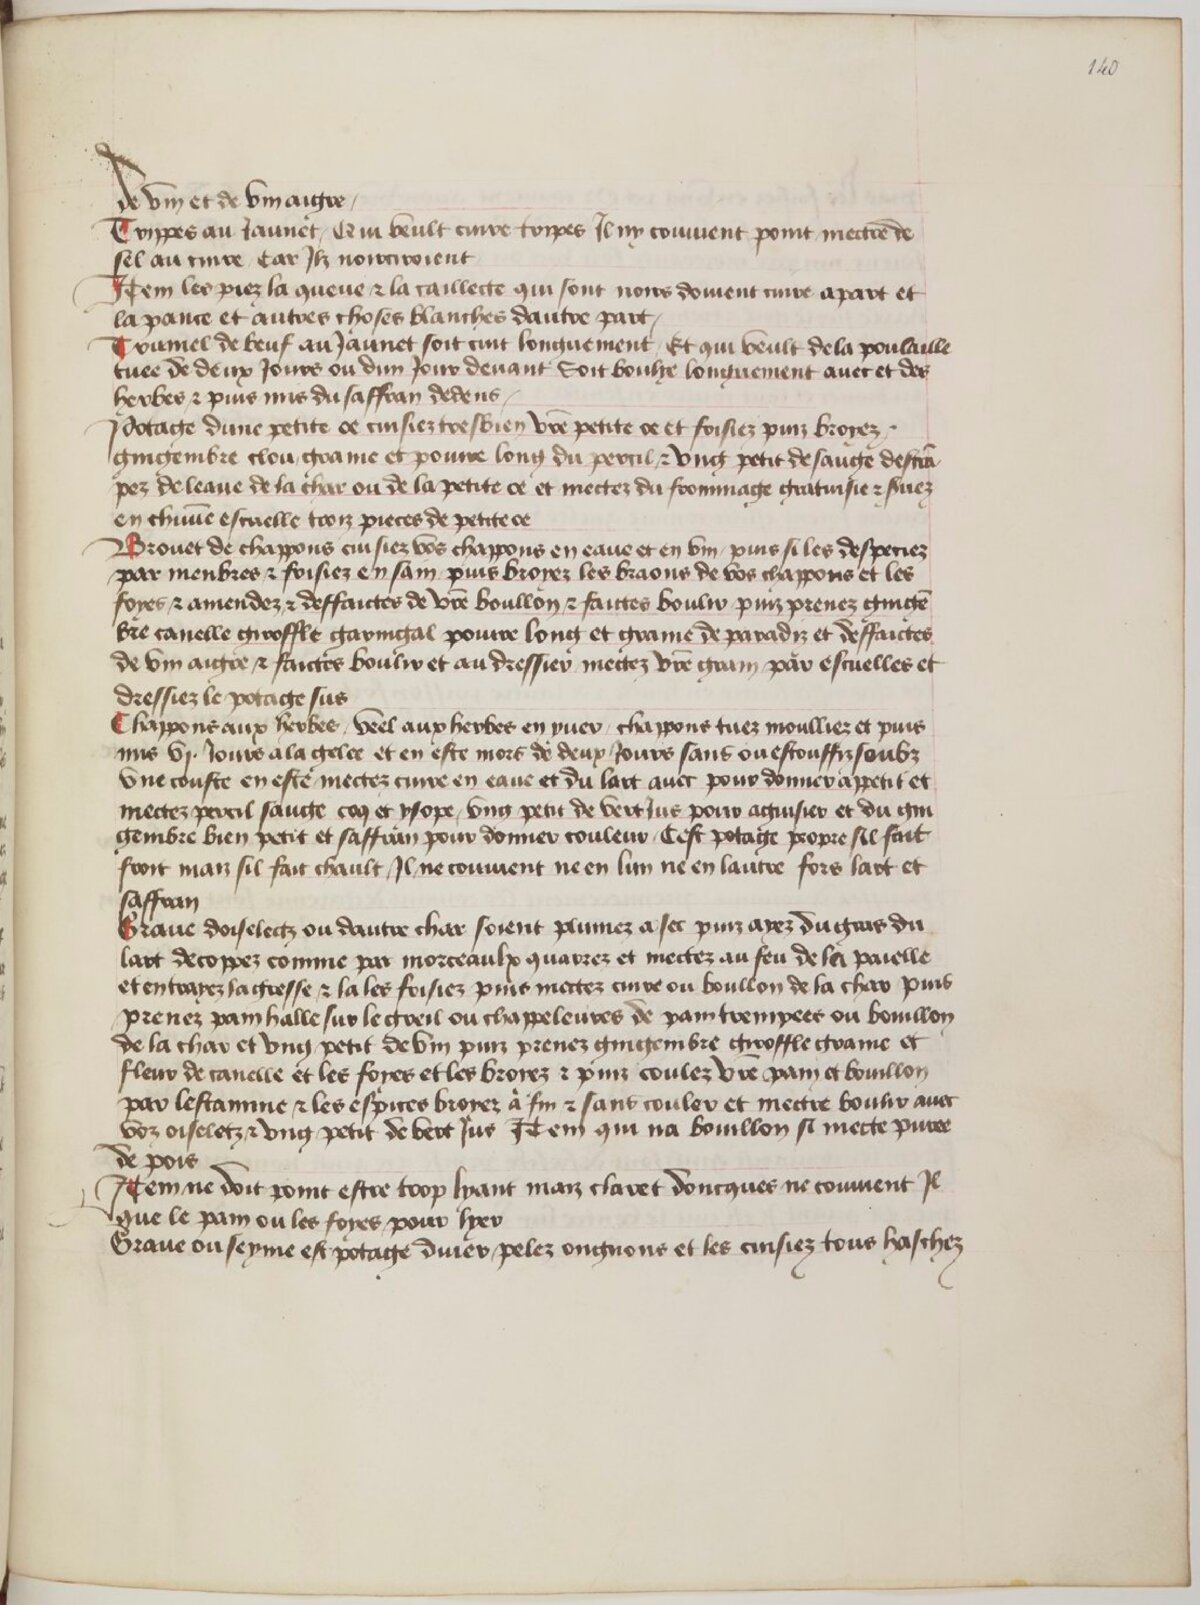 140
de vin et de vin aigre /
Trippes au Jaunet / Qui veult cuire trippes Il ny convient point mectre de
sel au cuire Car Ilz noirciroient
Item les piez la queue & la caillecte qui sont noirs doivent cuire apart et
la pance et autres choses blanches dautre part /
Trumel de beuf au Jaunet soit cuit longuement Et qui veult de la poulaille
tuee de deux Jours ou dun Jour devant Soit boulye longuement avec et des
herbes & puis mis du saffran dedens /
Potage dune petite oe cuisiez tresbien vr̄e petite oe et frisiez puiz broyez
gingembre clou graine et poivre long du percil & ung petit de sauge destrā
pez de leaue de la char ou de la petite oe et mectez du frommage gratuisie &
en chūne escuelle troiz pieces de petite oe
Brouet de chappons cuisiez vos chappons en eaue et en vin puis si les despeciez
par menbres & frisiez en sain puis broyez les braons de vos chappons et les
foyes & amendez & deffaictes de vr̄e boullon & faictes boulir puiz prenez gingē
bre canelle giroffle garingal poivre long et graine de paradiz et deffaictes
de vin aigre & faictes boulir et au dressier mectez vr̄e grain par escuelles et
dressiez le potage sus
Chappons aux herbes / Veel aux herbes en yver / chappons tuez moulliez et puis
mis vj. Jours a la gelee et en este mors de deux Jours sans ou estouffez soubz
une couste en este mectez cuire en eaue et du lart avec pour donner appetit et
mectez percil sauge coq et ysope / ung petit de vert Jus pour aguisier et du gin
gembre bien petit et saffran pour donner couleur / Cest potage propre sil fait
froit maiz sil fait chault / Il ne convient ne en lun ne en lautre fors lart et
saffran
Grave doiselectz ou dautre char soient plumez a sec puiz ayez du gras du
lart decoppez comme par morceaulx quarrez et mectez au feu de la paielle
et en trayez la gresse & la les frisiez puis mectez cuire ou boullon de la char puis
prenez pain halle sur le greil ou chappeleures de pain trempees ou bouillon
de la char et ung petit de vin puiz prenez gingembre giroffle graine et
fleur de canelle et les foyes et les broyez & puiz coulez vr̄e pain et bouillon
par lestamine & les espices broyez a fin & sans couler et mectre boulir avec
voz oiseletz & ung petit de vert Jus Item qui na bouillon si mecte puree
de pois
Item ne doit point estre trop lyant maiz claret doncques ne convient Il
que le pain ou les foyes pour lyer
Grave ou seyme est potage diver / pelez ongnons et les cuisiez tous haschez